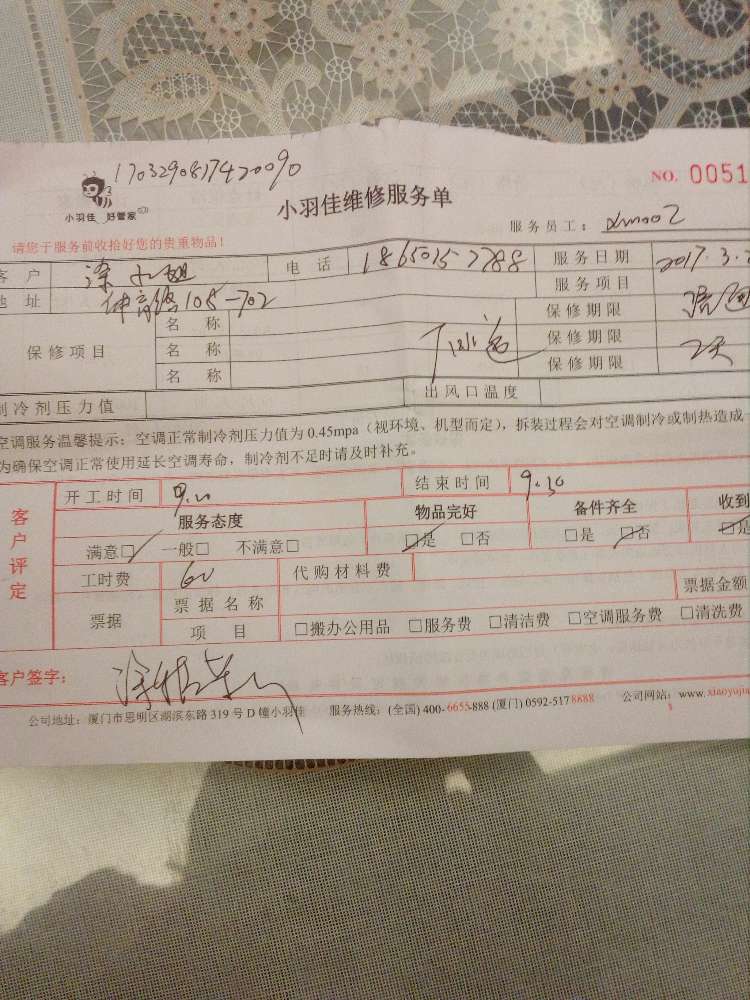 1703290817420090
NO. 0051
小羽佳 好管家
小羽佳维修服务单
服务员工: xm002
请您于服务前收拾好您的贵重物品!
客 户 涂小姐 电 话 服务日期 2017.3.2
地 址 体育路108-702 服务项目
保修项目 名 称 保修期限
名 称 保修期限
名 称 保修期限
制冷剂压力值 出风口温度
空调服务温馨提示: 空调正常制冷剂压力值为 0.45mpa (视环境、机型而定), 拆装过程会对空调制冷或制热造成
为确保空调正常使用延长空调寿命, 制冷剂不足时请及时补充。
客户评定
开工时间 结束时间 9.30
服务态度 物品完好 备件齐全 收到
满意□ 一般□ 不满意□ □是 □否 □是 □否 □是
工时费 60 代购材料费
票据 票据名称 票据金额
项 目 □搬办公用品 □服务费 □清洁费 □空调服务费 □清洗费
客户签字:
公司地址: 厦门市思明区湖滨东路 319 号 D 幢小羽佳 服务热线: (全国) 400-6655-888 (厦门) 0592-5178888 公司网站: www.xiaoyujia